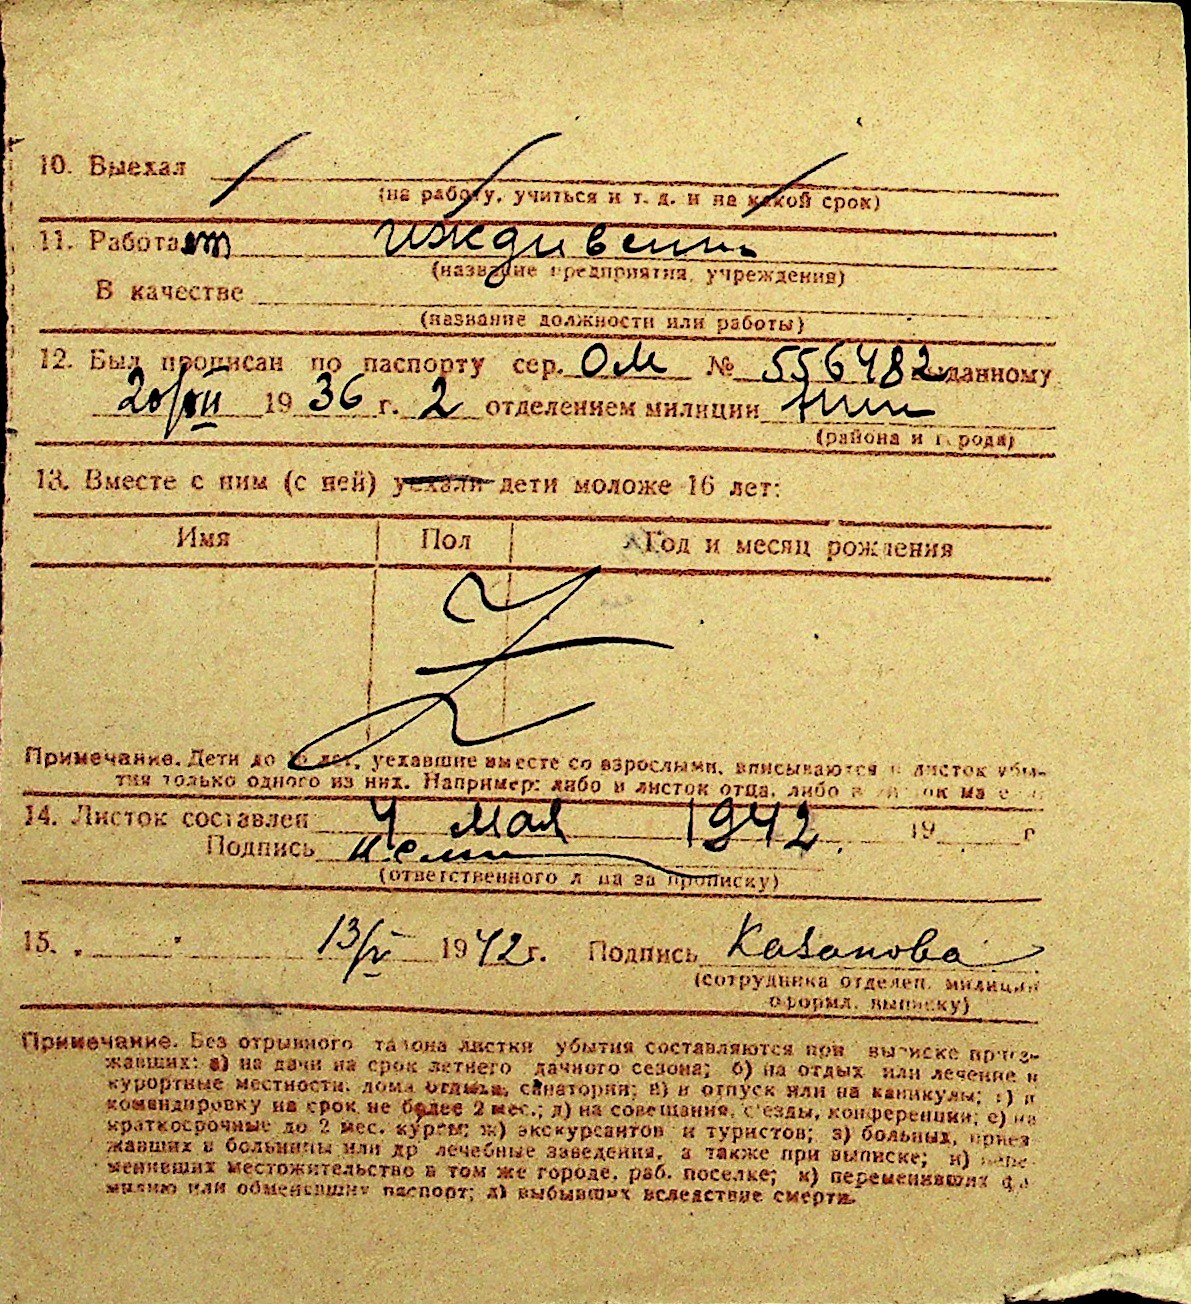 10. Выехал
(на работу, учиться и т. д. и на какой срок)
11. Работает иждивени
(название предприятия, учреждения)
В качестве
(название должности или работы)
12. Был прописан по паспорту сер. ОМ № 556482 выданному
20/XII 1936 г. 2 отделением милиции
(района и города)
13. Вместе с ним (с ней) уехали дети моложе 16 лет:
Имя Пол Год и месяц рождения
Примечание. Дети до 16 лет, уехавшие вместе со взрослыми, вписываются в листок убы-
тия только одного из них. Например: либо в листок отца, либо в листок матери
14. Листок составлен 4 мая 1942. 19 г
Подпись
(ответственного лица за прописку)
15. „ " 13/V 1942 г. Подпись Казакова
(сотрудника отделен. милиции
оформл. выписку)
Примечание. Без отрывного талона листки убытия составляются при выписке приез-
жавших: а) на дачи на срок летнего дачного сезона; б) на отдых или лечение в
курортные местности, дома отдыха, санатории; в) в отпуск или на каникулы; г) в
командировку на срок не более 2 мес.; д) на совещания, с'езды, конференции; е) на
краткосрочные до 2 мес. курсы; ж) экскурсантов и туристов; з) больных, приез
жавших в больницы или др лечебные заведения, а также при выписке; и) пере-
менивших местожительство в том же городе, раб. поселке; к) переменивших фа
милию или обменявших паспорт; л) выбывших вследствие смерти.